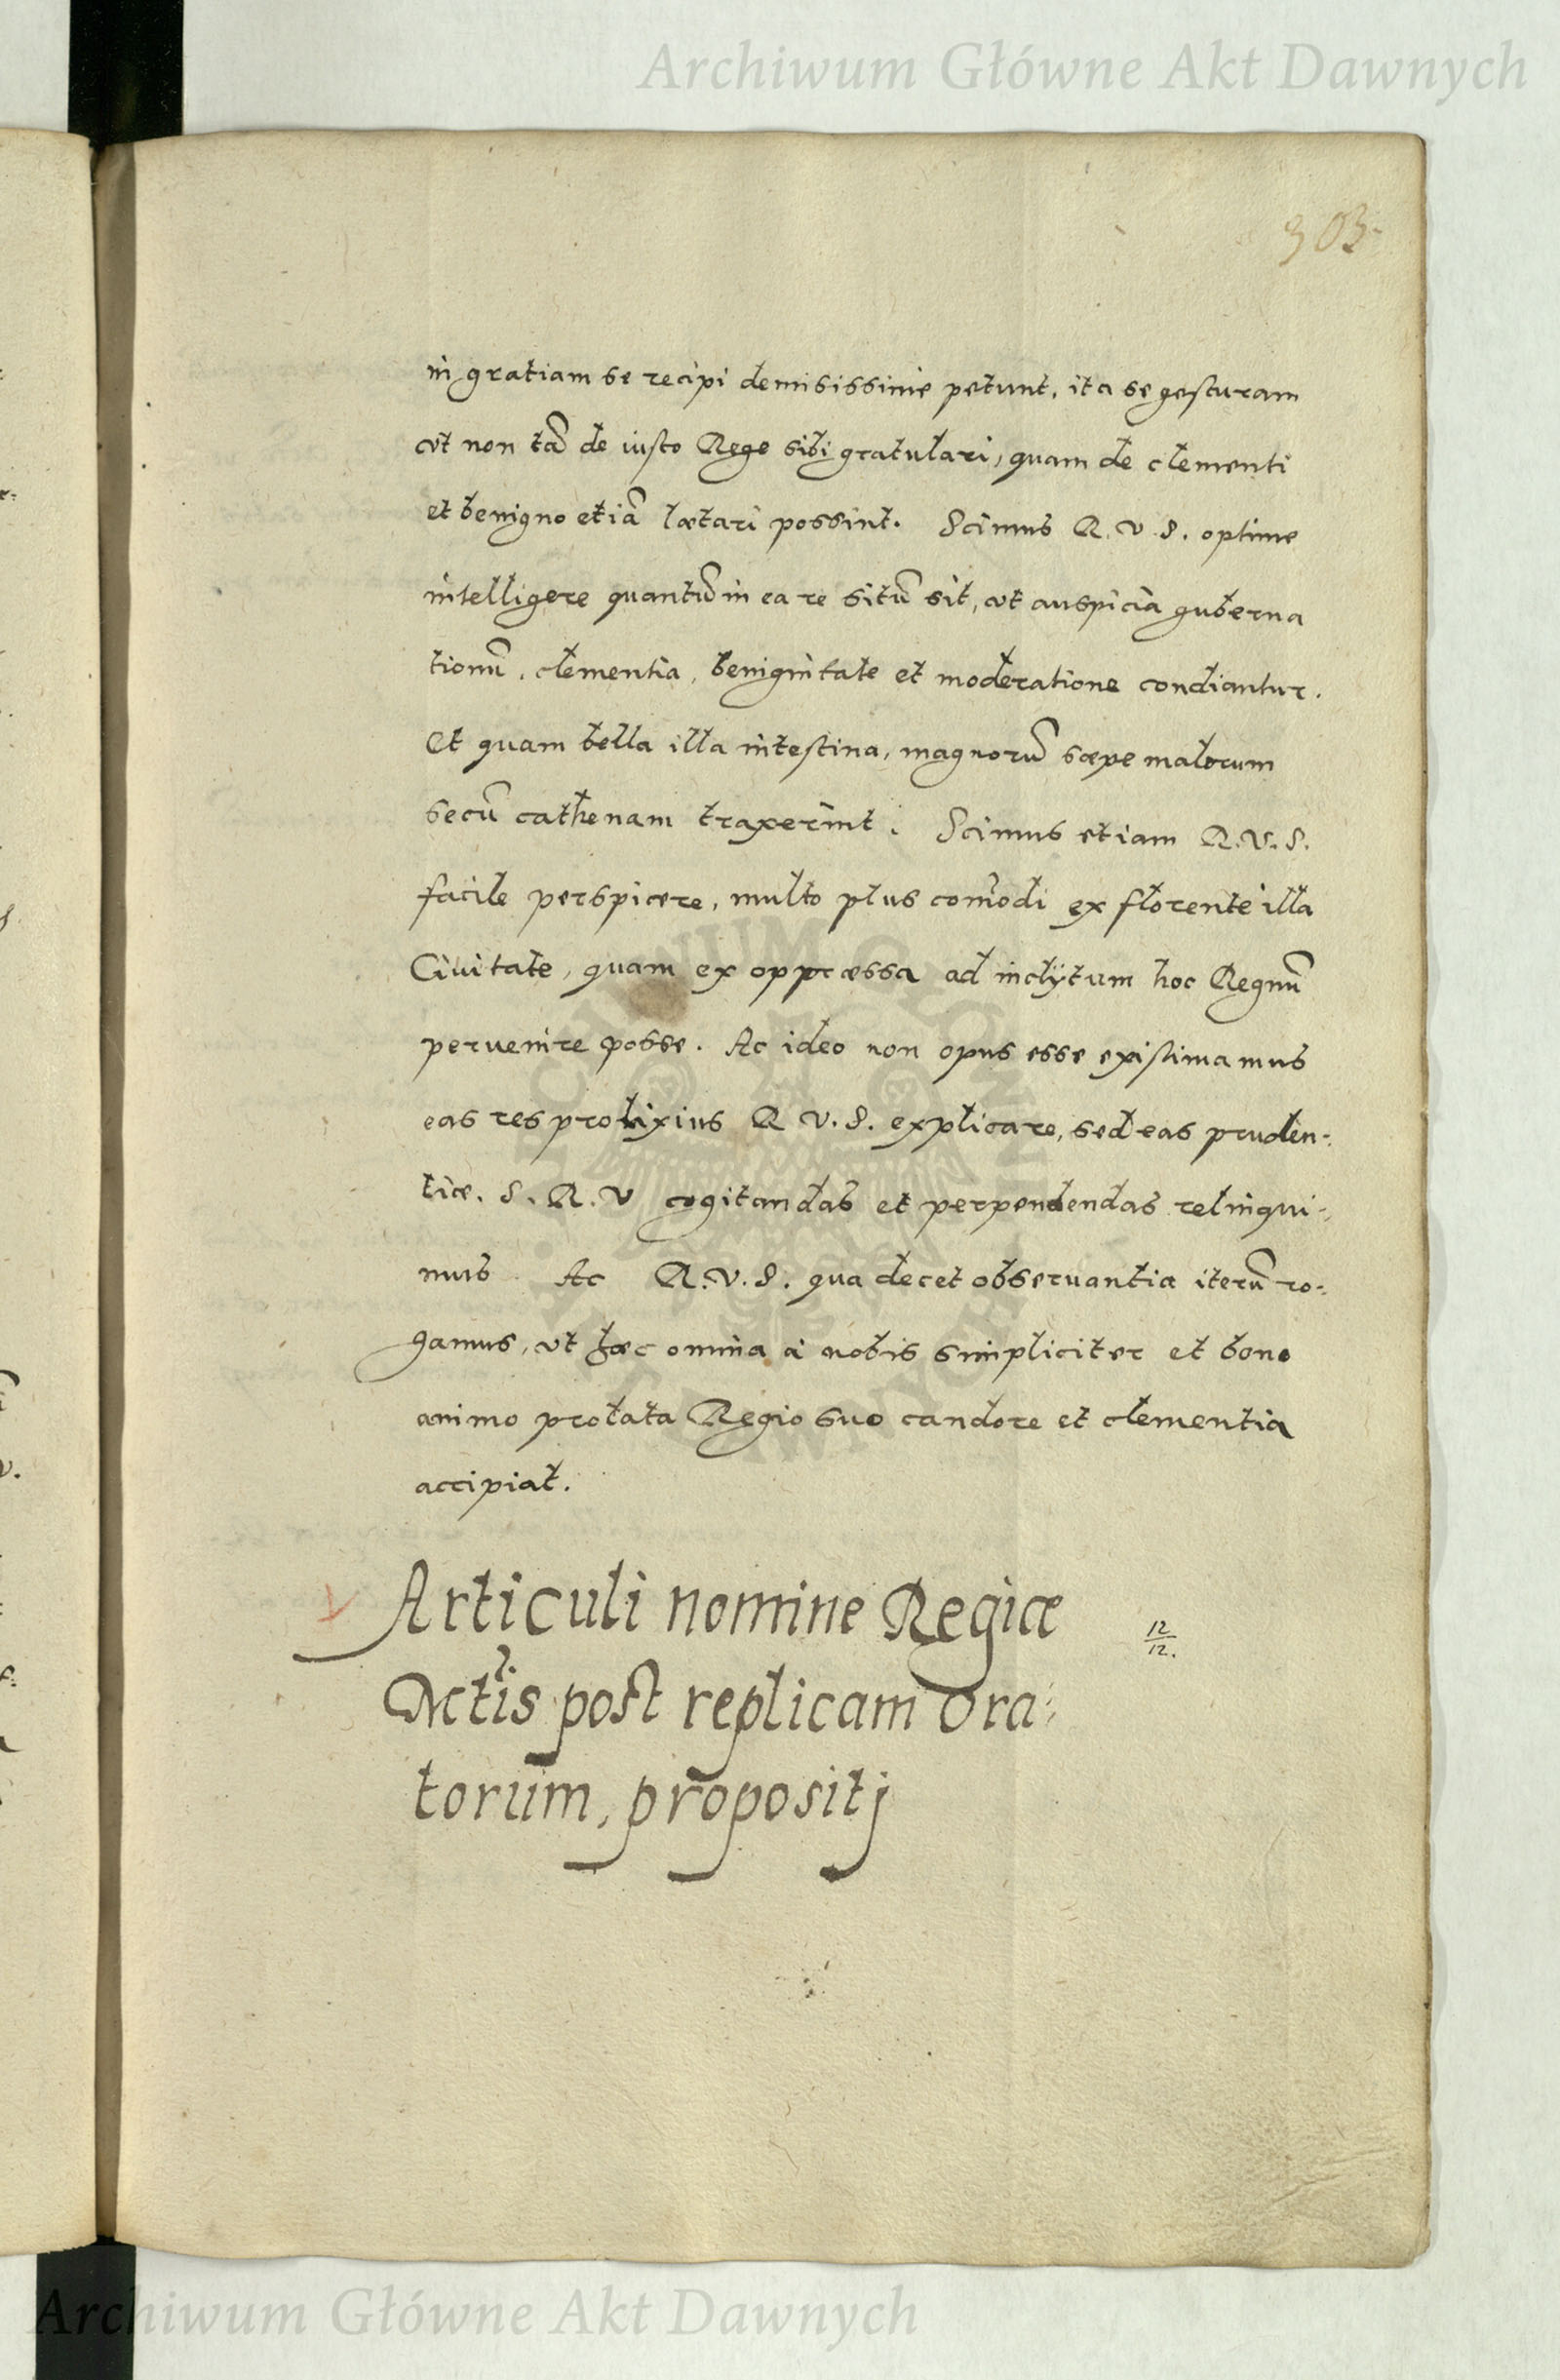 Archiwum Główne Akt Dawnych
303.
in gratiam se recipi demisissime petunt, ita se gesturam
vt non tã de iusto Rege sibi gratulari, quam de clementi
et benigno etiã lætari possint. Scimus R. V. S. optime
intelligere quantũ in ea re sitũ sit, vt auspicia guberna
tionũ, clementia, benignitate et moderatione condiantur.
Et quam bella illa intestina, magnorũ sæpe malorum
secũ cathenam traxerint. Scimus etiam R. V. S.
facile perspicere, multo plus com̃odi ex florente illa
Ciuitate, quam ex oppræssa ad inclÿtum hoc Regnũ
peruenire posse. Ac ideo non opus esse existimamus
eas res prolixius R V. S. explicare, sed eas pruden-
tiæ. S. R. V cogitandas et perpendendas relinqui-
mus. Ac R. V. S. qua decet obseruantia iterũ ro-
gamus, vt hæc omnia à nobis simpliciter et bono
animo prolata Regio suo candore et clementia
accipiat.
Articuli nomine Regiæ
Mtis post replicam Ora-
torum, propositj
12
12.
Archiwum Główne Akt Dawnych